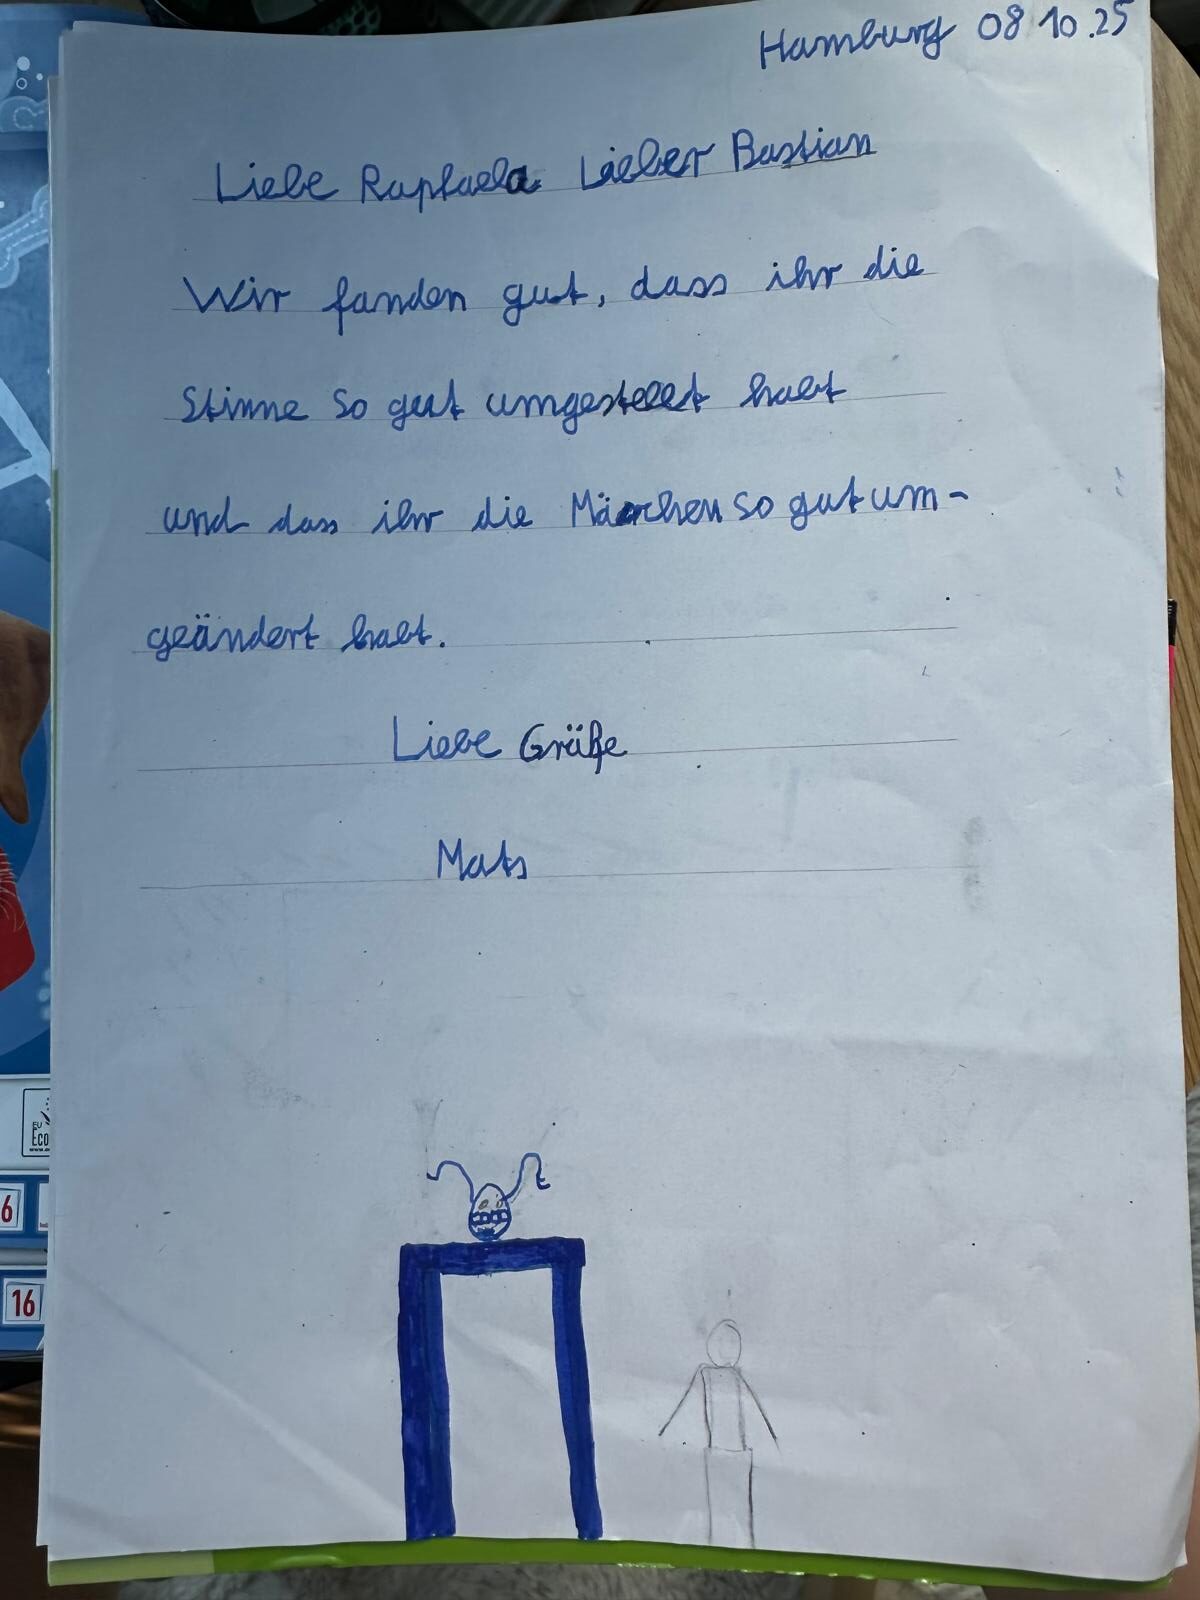 Hamburg 08 10.25
Liebe Raphaela Lieber Bastian
Wir fanden gut, dass ihr die
Stimme so gut umgestellt habt
und dass ihr die Märchen so gut um-
geändert habt.
Liebe Grüße
Mats
EU
Eco
6
16